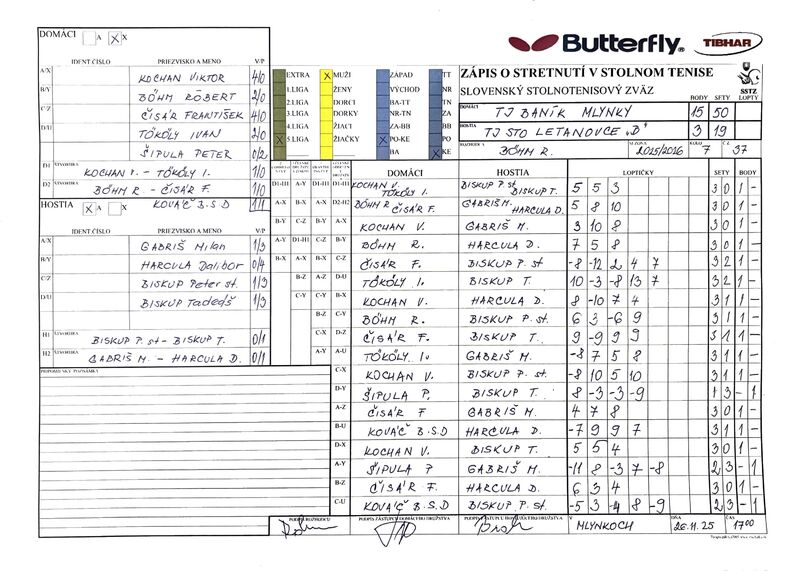 DOMÁCI A X X
IDENT.ČÍSLO PRIEZVISKO A MENO V/P
A/X KOCHAN VIKTOR 4/0
B/Y BÖHM RÓBERT 2/0
C/Z ČISÁR FRANTIŠEK 4/0
D/U TÖKÖLY IVAN 2/0
ŠIPULA PETER 0/2
D1 ŠTVORHRA KOCHAN V. - TÖKÖLY I. 1/0
D2 ŠTVORHRA BÖHM R. - ČISÁR F. 1/0
HOSTIA X A X KOVÁČ B.S.D 1/1
IDENT.ČÍSLO PRIEZVISKO A MENO V/P
A/X GABRIŠ Milan 1/3
B/Y HARCULA Dalibor 0/4
C/Z BISKUP Peter st. 1/3
D/U BISKUP Tadeáš 1/3
H1 ŠTVORHRA BISKUP P. st- BISKUP T. 0/1
H2 ŠTVORHRA GABRIŠ M. - HARCULA D. 0/1
Butterfly TIBHAR
EXTRA X MUŽI ZÁPAD TT
1.LIGA ŽENY VÝCHOD NR
2.LIGA DORCI BA-TT TN
3.LIGA DORKY NR-TN ZA
4.LIGA ŽIACI ZA-BB BB
X 5.LIGA ŽIAČKY X PO-KE PO
BA X KE
ZÁPIS O STRETNUTÍ V STOLNOM TENISE
SLOVENSKÝ STOLNOTENISOVÝ ZVÄZ SSTZ
BODY SETY LOPTY
DOMÁCI TJ BANÍK MLYNKY 15 50
HOSTIA TJ STO LETANOVCE „B" 3 19
BÖHM R. SEZÓNA 2025/2026 KOLO 7 Č.Z. 37
DOMÁCI HOSTIA LOPTIČKY SETY BODY
KOCHAN V. TÖKÖLY I. BISKUP P. st BISKUP T. 5 5 3 3 0 1 -
BÖHM R ČISÁR F. GABRIŠ M. HARCULA D. 5 8 10 3 0 1 -
KOCHAN V. GABRIŠ M. 3 10 8 3 0 1 -
BÖHM R. HARCULA D. 7 5 8 3 0 1 -
ČISÁR F. BISKUP P. st -8 -12 2 4 7 3 2 1 -
TÖKÖLY I. BISKUP T. 10 -3 -8 13 7 3 2 1 -
KOCHAN V. HARCULA D. 8 -10 7 4 3 1 1 -
BÖHM R. BISKUP P. st 6 3 -6 9 3 1 1 -
ČISÁR F. BISKUP T. 9 -9 9 9 3 1 1 -
TÖKÖLY I. GABRIŠ M. -8 7 5 8 3 1 1 -
KOCHAN V. BISKUP P. st -8 10 5 10 3 1 1 -
ŠIPULA P. BISKUP T. 8 -3 -3 -9 1 3 - 1
ČISÁR F GABRIŠ M. 4 7 8 3 0 1 -
KOVÁČ B.S.D HARCULA D. -7 9 9 7 3 1 1 -
KOCHAN V. BISKUP T. 5 5 4 3 0 1 -
ŠIPULA P GABRIŠ M. -11 8 -3 7 -8 2 3 - 1
ČISÁR F. HARCULA D. 6 3 4 3 0 1 -
KOVÁČ B.S.D BISKUP P. st -5 3 -4 8 -9 2 3 - 1
PODPIS ROZHODCU PODPIS ZÁSTUPCU DOMÁCEHO DRUŽSTVA PODPIS ZÁSTUPCU HOSŤUJÚCEHO DRUŽSTVA V MLYNKOCH DŇA 26.11.25 ČAS 17 00